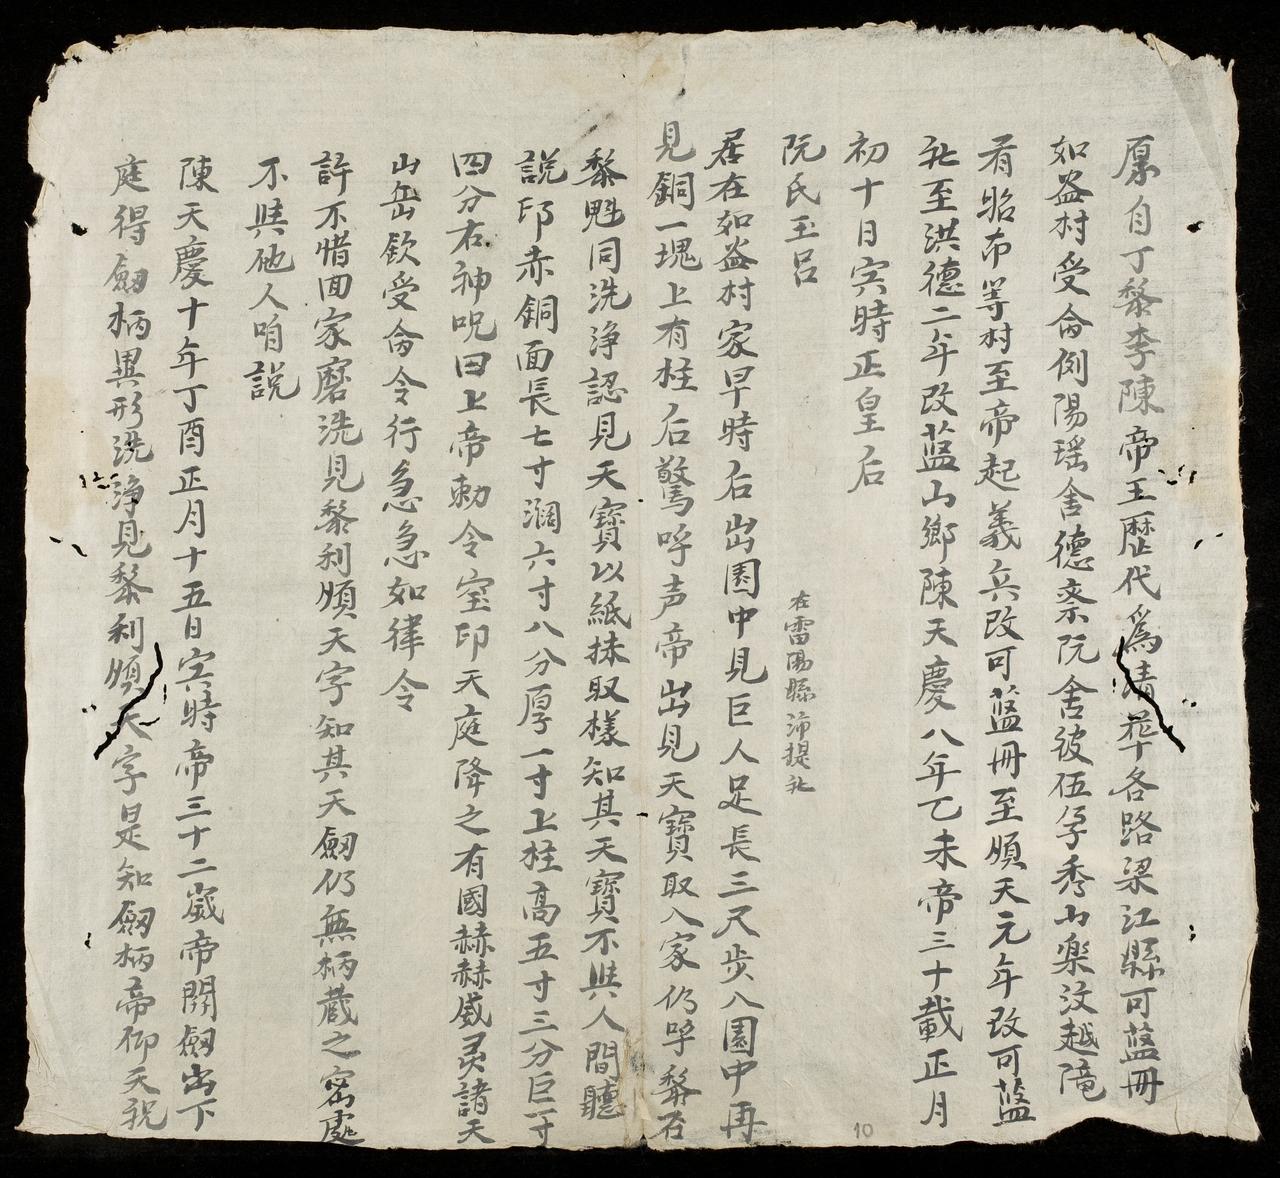 原自丁黎李陳帝王歷代爲請葬各路梁江縣可藍冊
如盎村受侖例陽瑶舍德齋阮舍彼伍孕秀山樂汶越隌
看昭布等村至帝起義兵改可藍冊至順天元年改可藍
社至洪德二年改藍山鄉陳天慶八年乙未帝三十載正月
初十日寅時正皇后
阮氏玉呂
在雷陽縣沛提社
居在如盎村家早時后出園中見巨人足長三尺步入園中再
見銅一塊上有柱后驚呼声帝出見天寶取入家仍呼黎石
黎魁同洗淨認見天寶以紙抹取樣知其天寶不與人間聽
説印赤銅面長七寸濶六寸八分厚一寸上柱高五寸三分巨一寸
四分右神呪曰上帝勅令宝印天庭降之有國赫赫威灵諸天
山岳欽受侖令行急急如律令
許不惜田家磨洗見黎利順天字知其天劔仍無柄蔵之密處
不與他人咱説
陳天慶十年丁酉正月十五日寅時帝三十二歲帝開劔出下
庭得劔柄異形洗淨見黎利順天字是知劔柄帝仰天祝